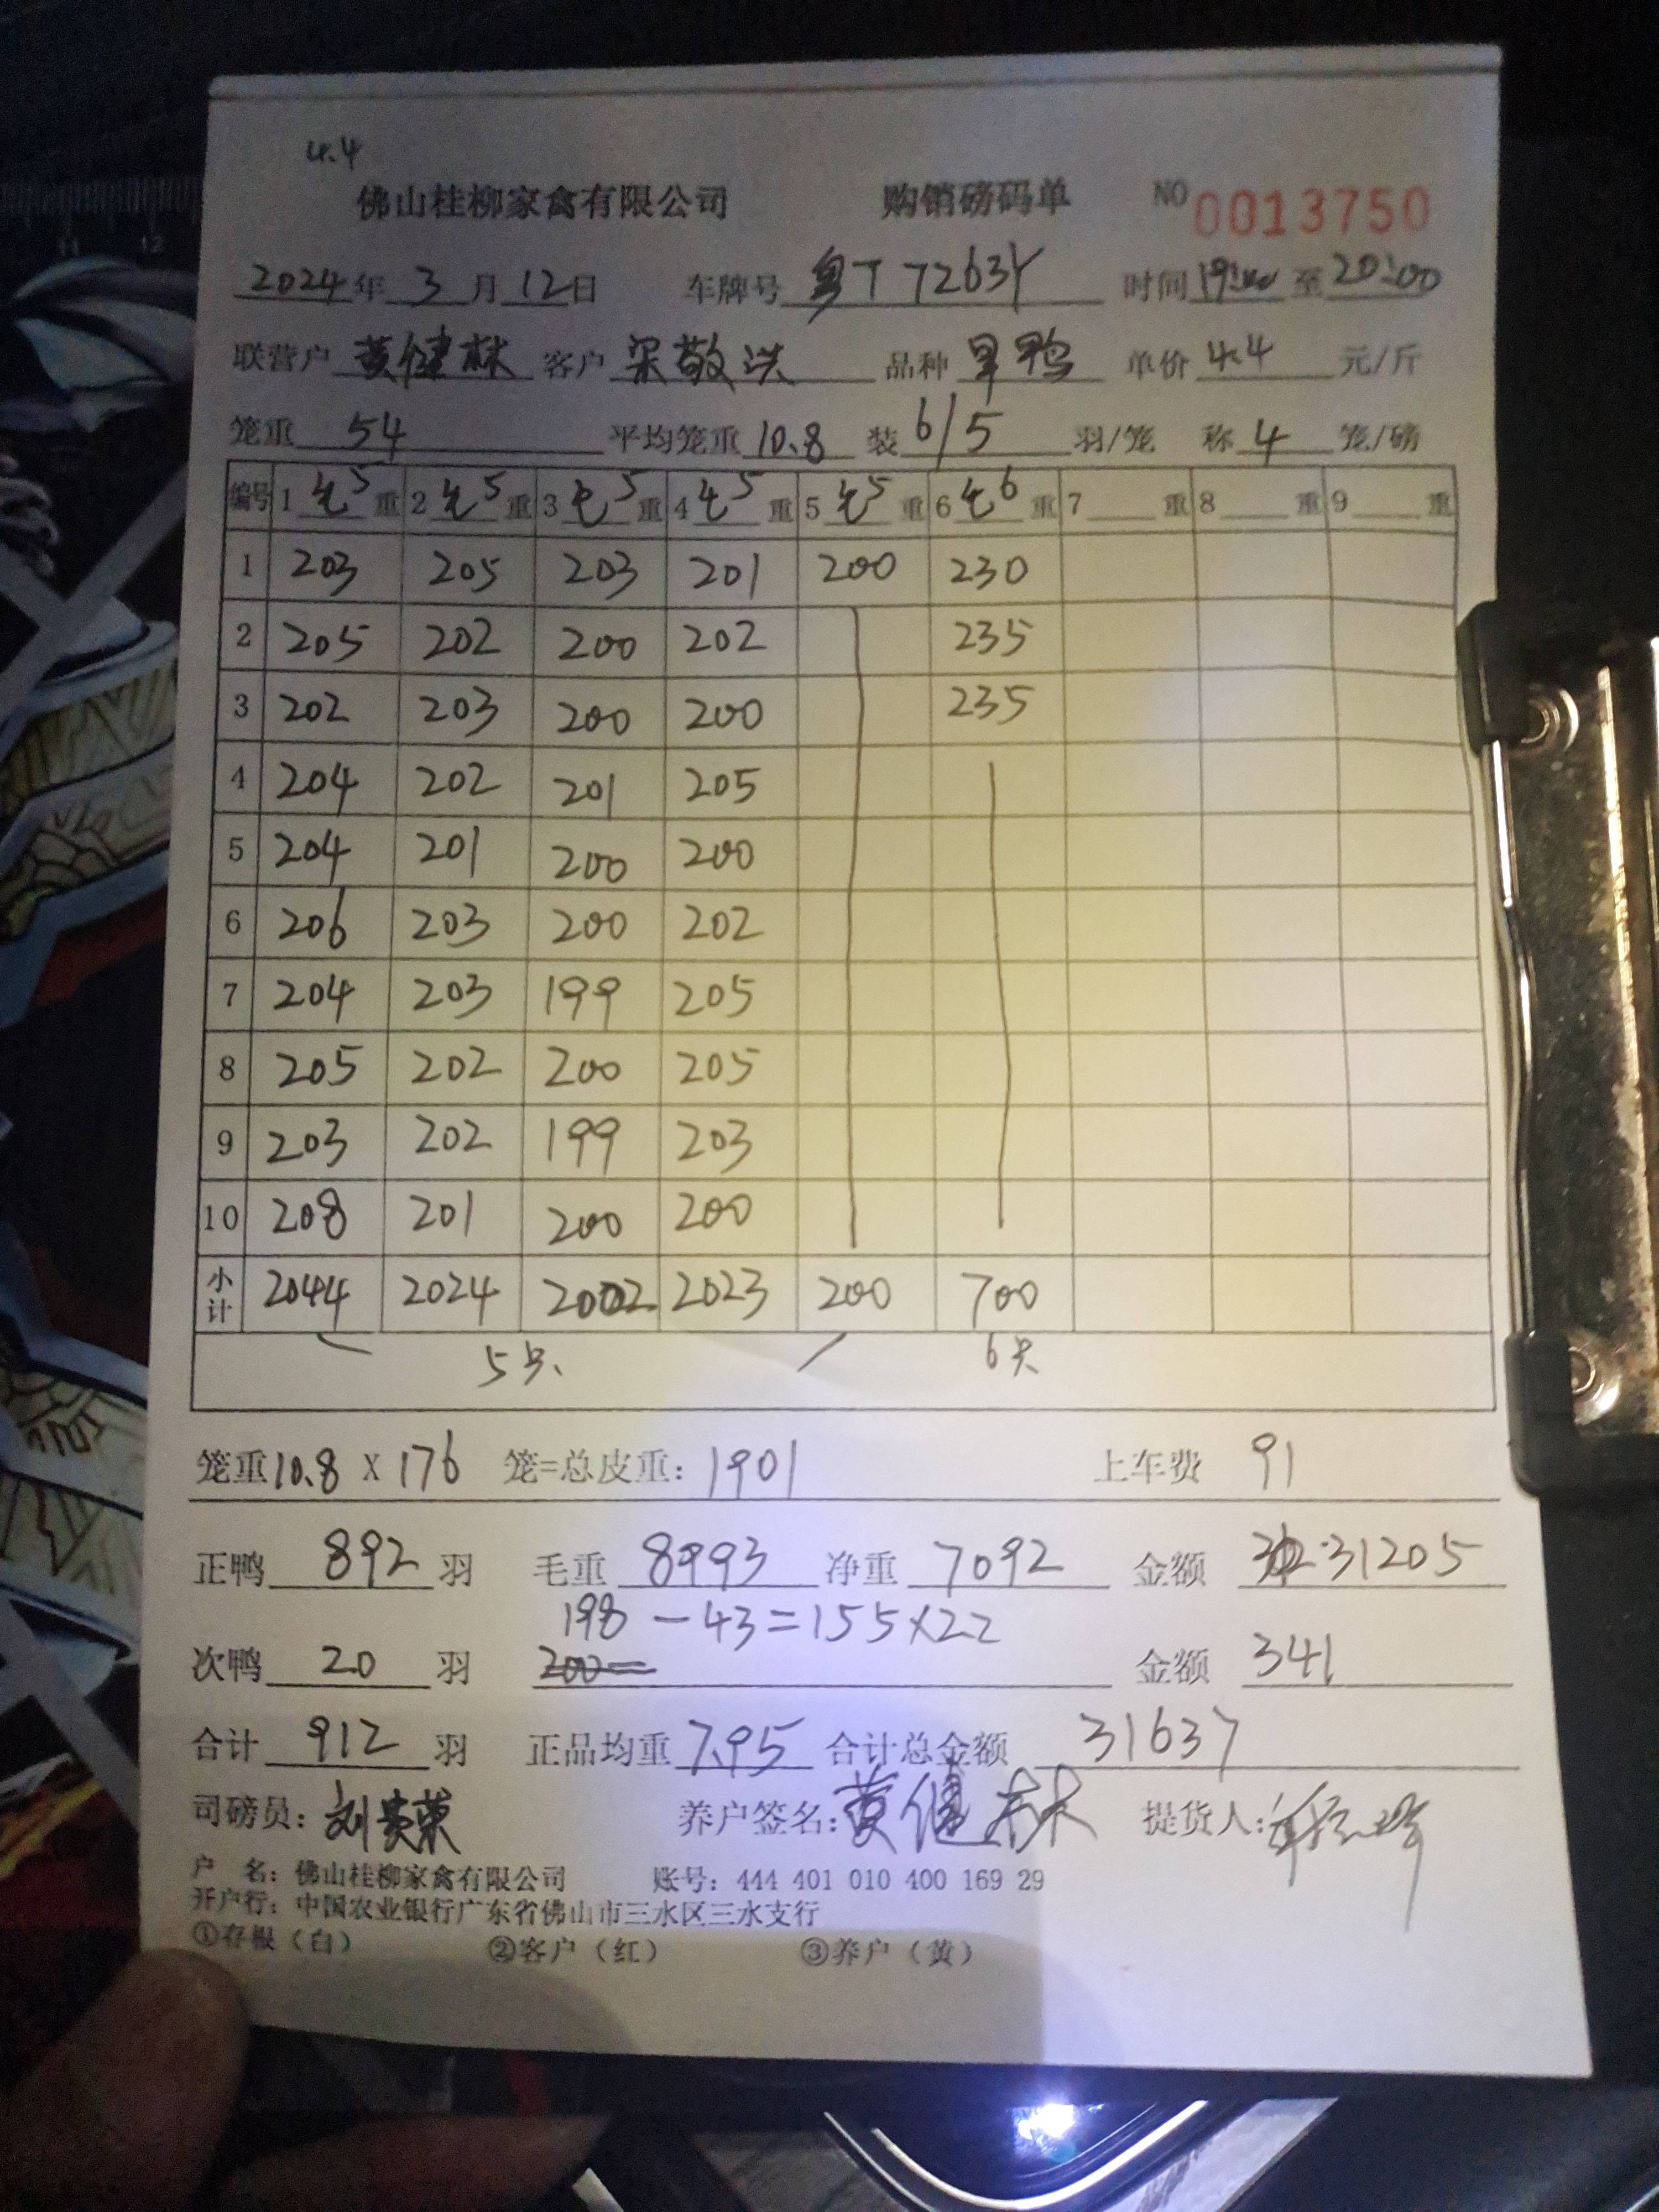 4.4
佛山桂柳家禽有限公司 购销磅码单 NO 0013750
2024年 3 月 12 日 车牌号 粤T 7263Y 时间 至 20:00
联营户 黄健林 客户 梁敬洪 品种 旱鸭 单价 4.4 元/斤
笼重 54 平均笼重 10.8 装 6/5 羽/笼 称 4 笼/磅
编号 1 毛5 重 2 毛5 重 3 毛5 重 4 毛5 重 5 毛5 重 6 毛6 重 7 重 8 重 9 重
1 203 205 203 201 200 230
2 205 202 200 202 235
3 202 203 200 200 235
4 204 202 201 205
5 204 201 200 200
6 206 203 200 202
7 204 203 199 205
8 205 202 200 205
9 203 202 199 203
10 208 201 200 200
小计 2044 2024 2002 2023 200 700
5只 6只
笼重 10.8 X 176 笼=总皮重: 1901 上车费 91
正鸭 892 羽 毛重 8993 净重 7092 金额 31205
198 - 43 = 155 × 2.2
次鸭 20 羽 200= 金额 341
合计 912 羽 正品均重 7.95 合计总金额 31637
司磅员: 刘贵荣 养户签名: 黄健林 提货人:
户 名: 佛山桂柳家禽有限公司 账号: 444 401 010 400 169 29
开户行: 中国农业银行广东省佛山市三水区三水支行
①存根（白） ②客户（红） ③养户（黄）